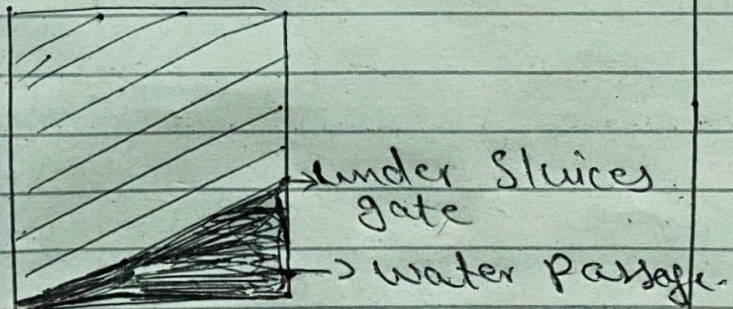 → under Sluices
gate
→ water Passage.